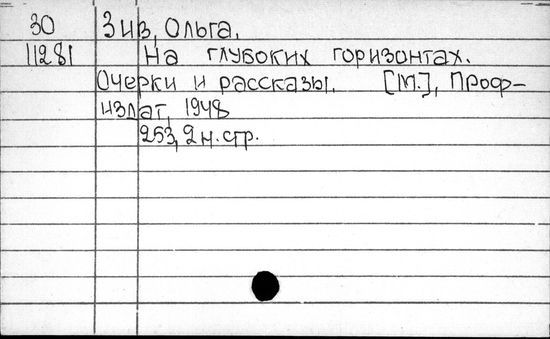 30 Зив, Ольга.
11281 На глубоких горизонтах.
Очерки и рассказы. [М.], Проф-
издат, 1948
253, 2 н. стр.